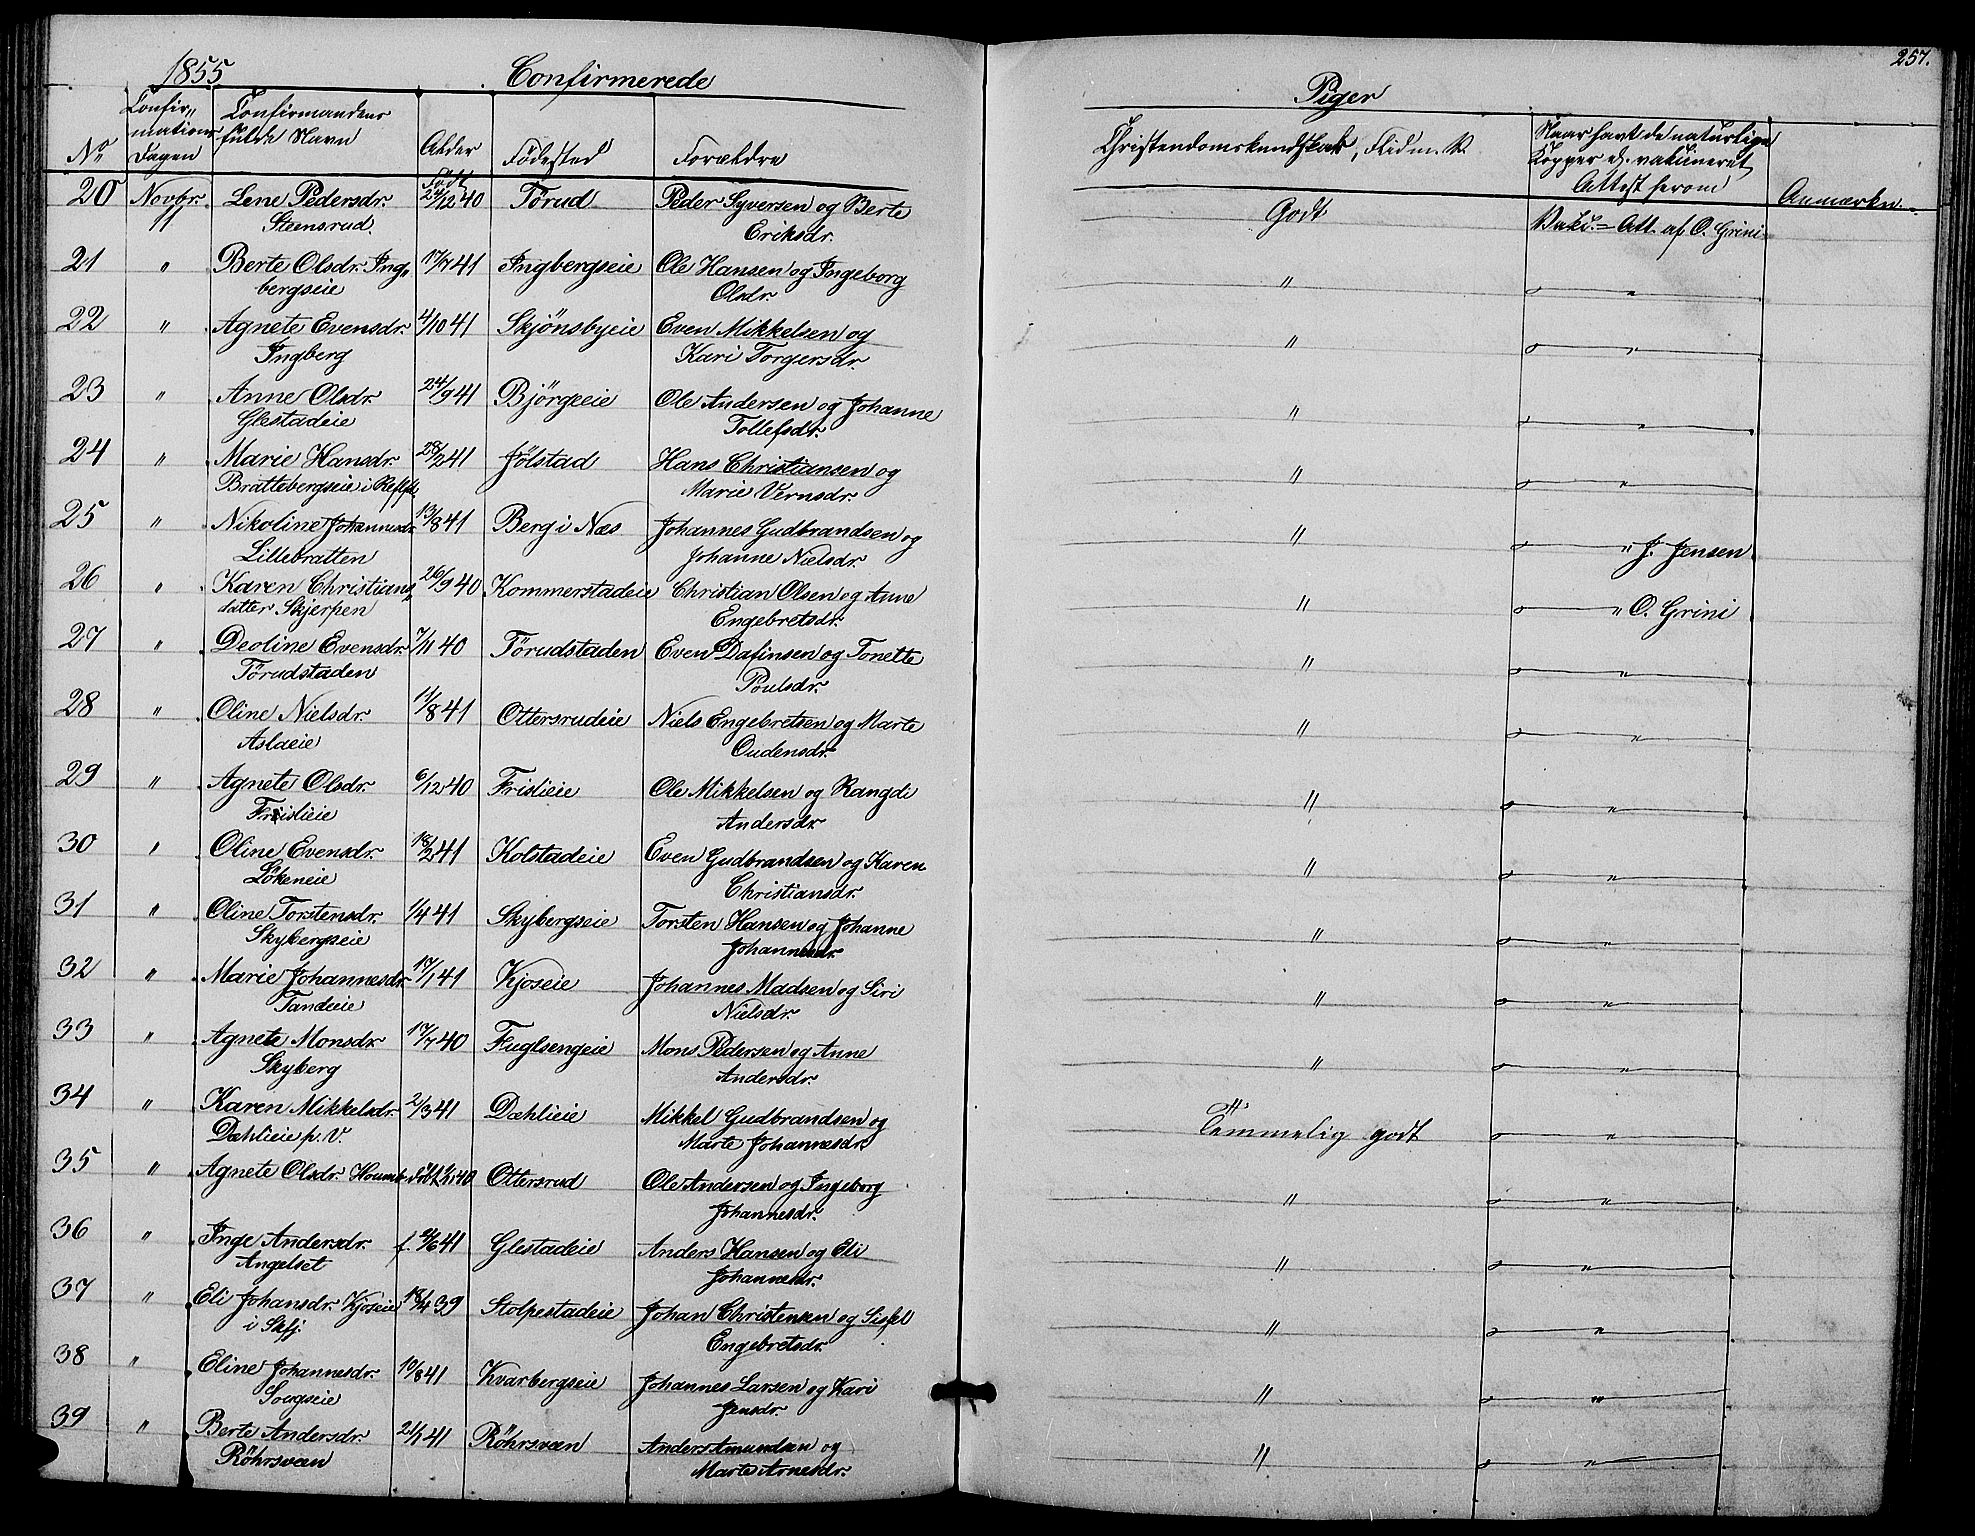 1855 Confirmerede
Piger
257.
No
Confir-
mations
Dagen
Confirmandens
fulde Navn
Alder
Födested
Forældre
Christendomskundskab, Flid m. V.
Naar havt de naturlige
Kopper el. vakcineret,
Attest herom
Anmærkn.
20 Novbr. Lene Pedersdr. Födt 24/12 40 Törud Peder Syversen og Berte Godt Vakc. = Att. af O. Grini
11 Steensrud. Eriksdr.
21 " Berte Olsdr. Ing- 17/7 41 Ingbergseie Ole Hansen og Ingeborg " "
bergseie Olsdr.
22 " Agnete Evensdr. 4/10 41 Skjönsbyeie Even Mikkelsen og " "
Ingberg Kari Torgersdr.
23 " Anne Olsdr. 24/9 41 Bjørgeeie Ole Andersen og Johanne " "
Glestadeie Tollefsdr.
24 " Marie Hansdr. 28/2 41 Jölstad Hans Christiansen og " "
Brattebergseie i Marie Vernsdr.
25 " Nikoline Johannesdr. 13/8 41 Berg i Næs Johannes Gudbrandsen og " " J. Jensen
Lillebratten Johanne Nielsdr.
26 " Karen Christians- 26/9 40 Kommerstadeie Christian Olsen og Anne " " O. Grini
datter Skjerpen Engebretsdr.
27 " Deoline Evensdr. 7/11 40 Törudstaden Even Dafinsen og Tonette " "
Törudstaden Poulsdr.
28 " Oline Nielsdr. 11/8 41 Ottersrudeie Niels Engebretsen og Marte " "
Aslaeie Oudensdr.
29 " Agnete Olsdr. 6/12 40 Frislieie Ole Mikkelsen og Rangdi " "
Frislieie Andersdr.
30 " Oline Evensdr. 18/2 41 Kolstadeie Even Gudbrandsen og Karen " "
Lökeneie Christiansdr.
31 " Oline Torstensdr. 1/4 41 Skybergseie Torsten Hansen og Johanne " "
Skybergseie Johannesdr.
32 " Marie Johannesdr. 17/1 41 Kjoseie Johannes Madsen og Siri " "
Tandeie Nielsdr.
33 " Agnete Monsdr. 17/7 40 Fuglsengeie Mons Pedersen og Anne " "
Skyberg Andersdr.
34 " Karen Mikkelsdr. 2/3 41 Dæhlieie Mikkel Gudbrandsen og Temmelig godt "
Dæhlieie p. V. Marte Johannesdr.
35 " Agnete Olsdr. döbt 40 Ottersrud Ole Andersen og Ingeborg " "
Johannesdr.
36 " Inge Andersdr. f. 41 Glestadeie Anders Hansen og Eli " "
Angelset Johannesdr.
37 " Eli Johansdr. Kjoseie 18/4 39 Stolpestadeie Johan Christensen og Sissel " "
i Skfj. Engebretsdr.
38 " Eline Johannesdr. 10/8 41 Kvarbergseie Johannes Larsen og Kari " "
Jensdr.
39 " Berte Andersdr. 21/1 41 Röhrsveen Anders Amundsen og " "
Röhrsveen Marte Arnesdr.